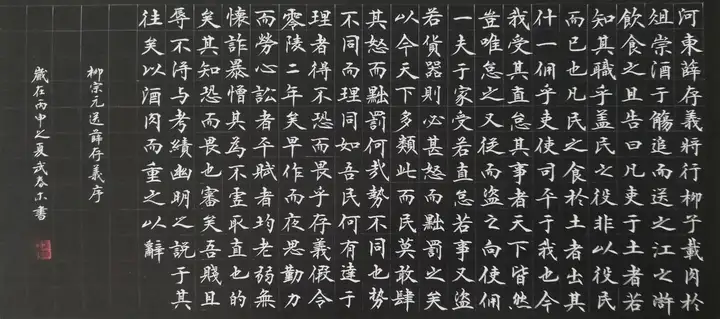 河東薛存義將行柳子載肉於
俎崇酒于觴追而送之江之滸
飲食之且告曰凡吏于土者若
知其職乎蓋民之役非以役民
而已也凡民之食於土者出其
什一佣乎吏使司平于我也今
我受其直怠其事者天下皆然
豈唯怠之又従而盜之向使佣
一夫于家受若直怠若事又盜
若貨器則必甚怒而黜罰之矣
以今天下多類此而民莫敢肆
其怒而黜罰何哉勢不同也勢
不同而理同如吾民何有達于
理者得不恐而畏乎存義假令
零陵二年矣早作而夜思勤力
而勞心訟者平賦者均老弱無
懷詐暴憎其為不虛取直也的
矣其知恐而畏也審矣吾賤且
辱不得与考績幽明之説于其
往矣以酒肉而重之以辭
柳宗元送薛存義序
歲在丙申之夏武春書